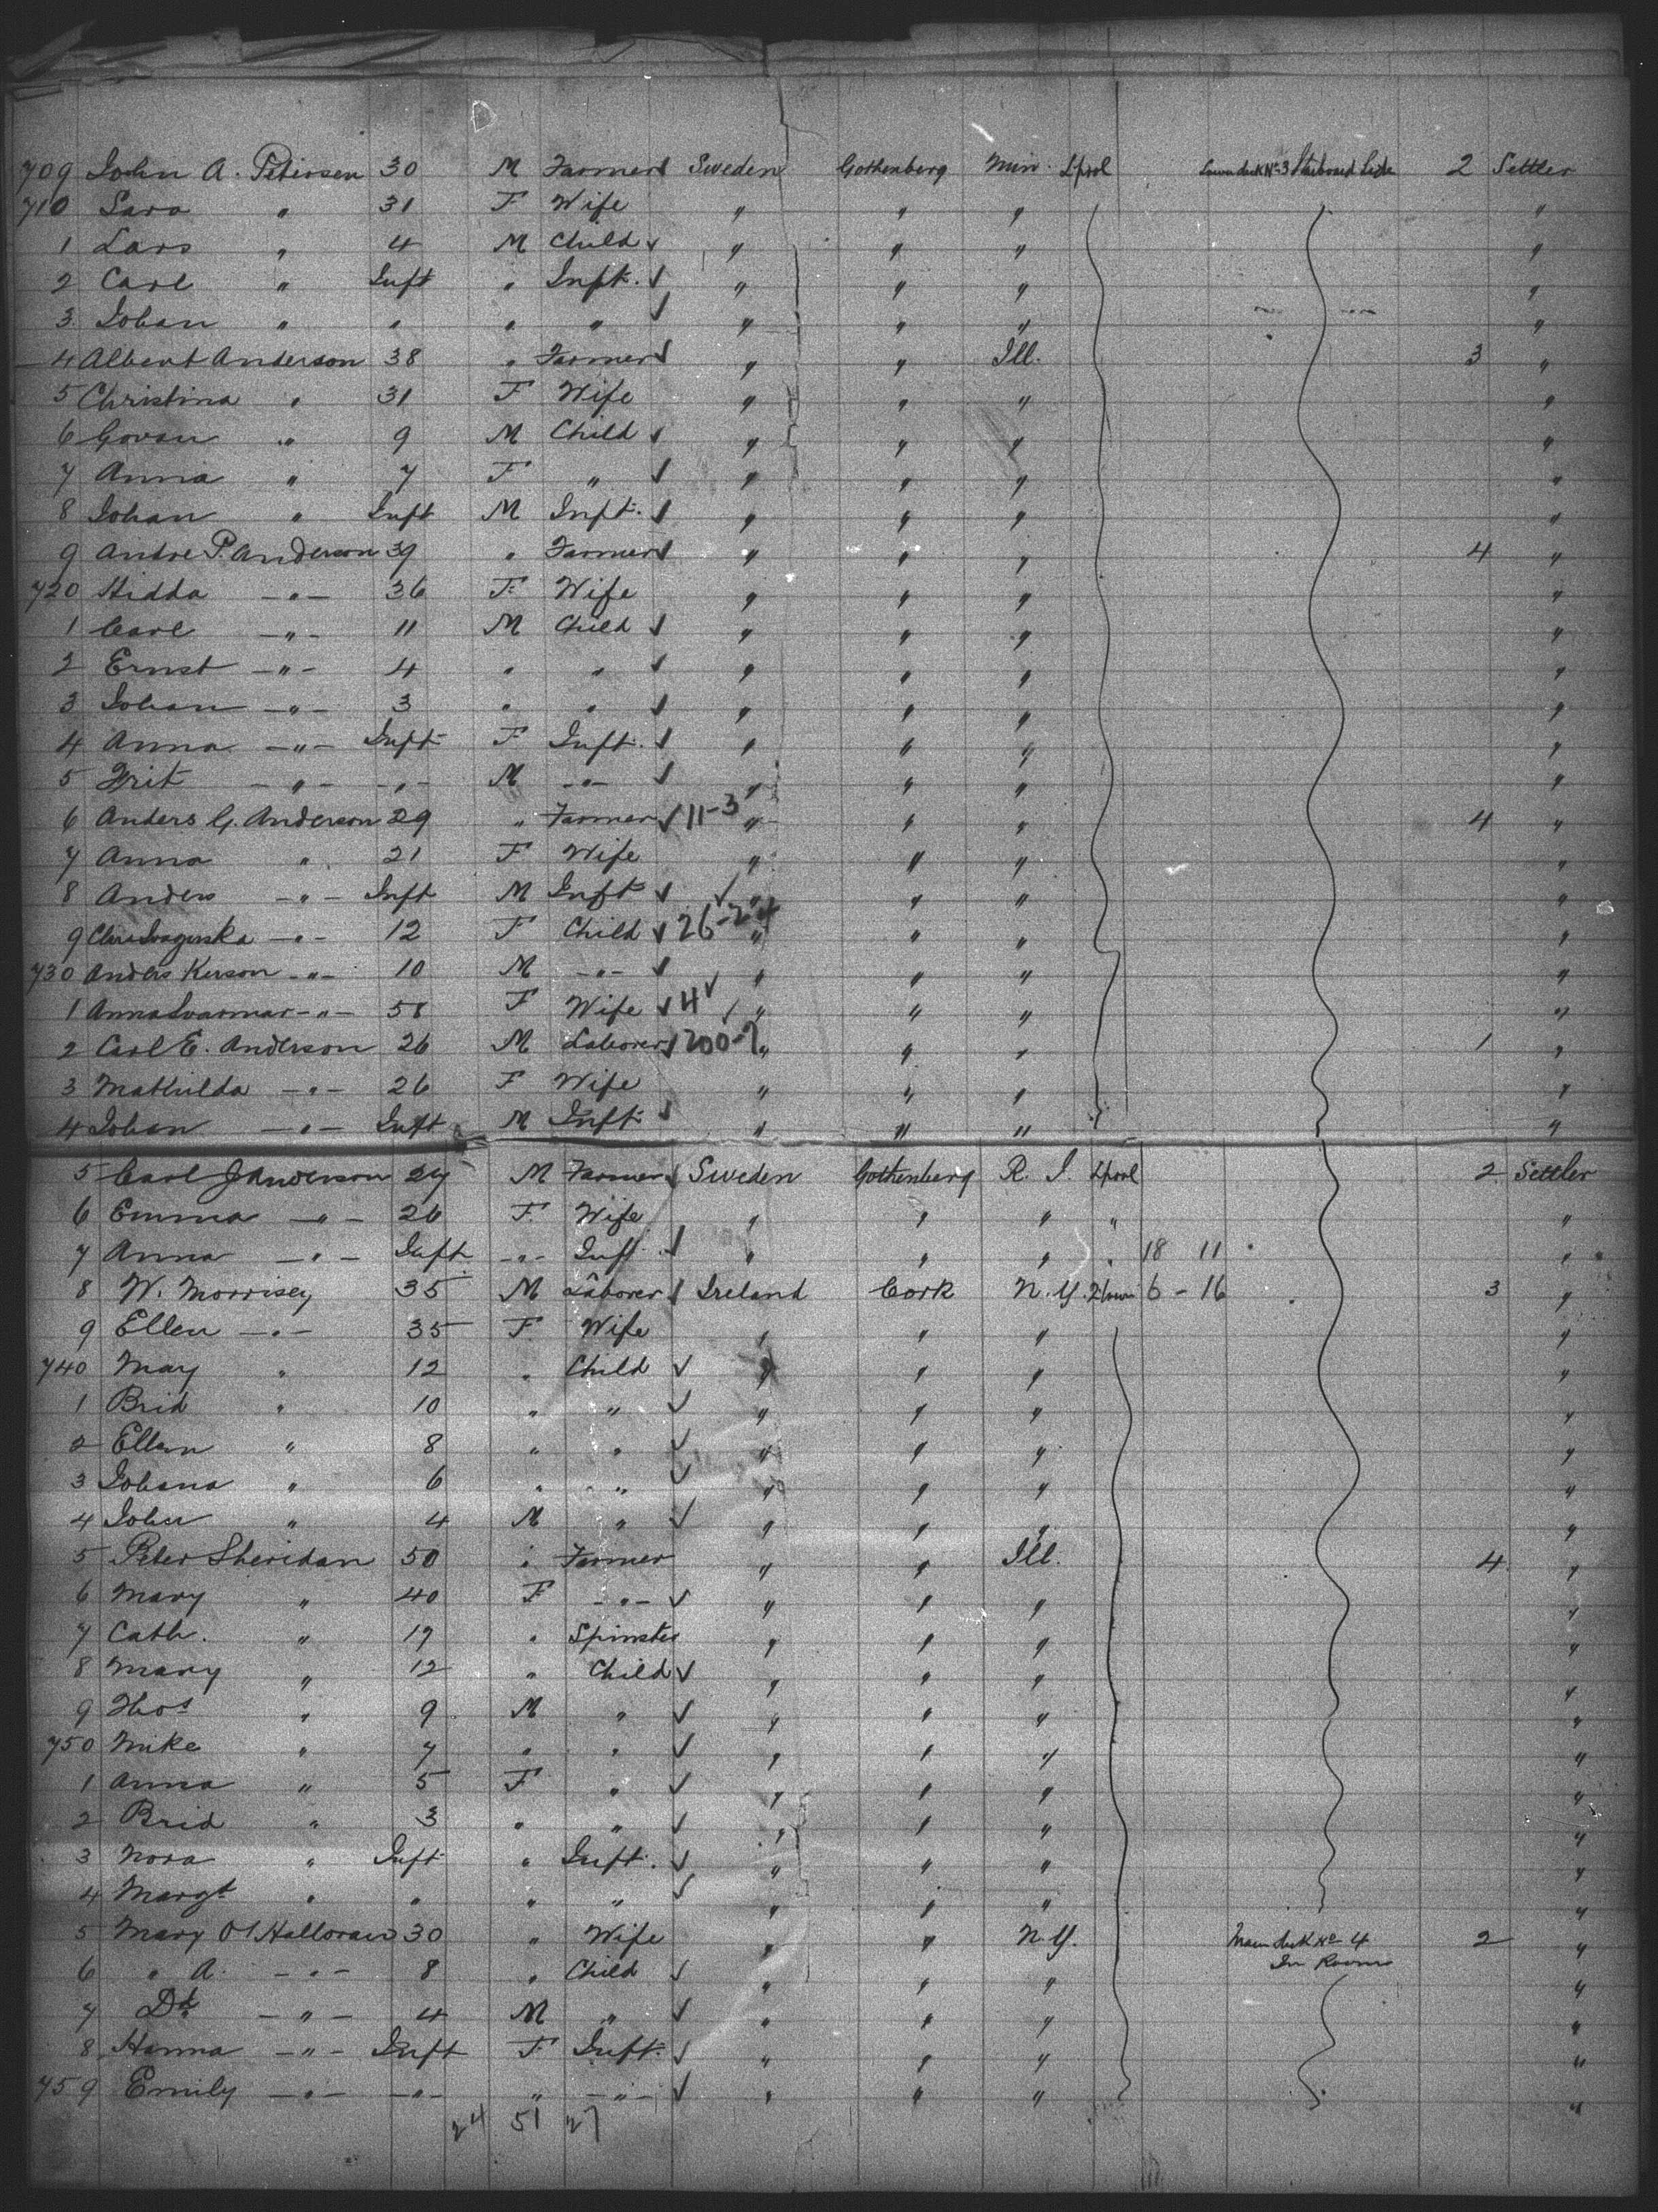 709 John A. Petersen 30 M Farmer Sweden Gothenberg Min. Lpool Lower deck No 3 Starboard Side 2 Settler
710 Sara " 31 F Wife " " " "
1 Lars " 4 M Child " " " "
2 Carl " Inft " Inft. " " " "
3 Johan " " " " " " " "
4 Albert Anderson 38 " Farmer " " Ill. 3 "
5 Christina " 31 F Wife " " " "
6 Govan " 9 M Child " " " "
7 Anna " 7 F " " " " "
8 Johan " Inft M Inft. " " " "
9 Andre P. Anderson 39 " Farmer " " " 4 "
720 Hidda -"- 36 F. Wife " " " "
1 Carl -"- 11 M Child " " " "
2 Ernst -"- 4 " " " " " "
3 Johan -"- 3 " " " " " "
4 Anna -"- Inft F Inft. " " " "
5 Frit -"- -"- M -"- " " " "
6 Anders G. Anderson 29 " Farmer 11-3 " " " 4 "
7 Anna " 21 F Wife " " " "
8 Anders -"- Inft M Inft " " " "
9 -"- 12 F Child 26-24 " " " "
730 Anders Kerson -"- 10 M -"- " " " "
1 -"- 58 F Wife 4 " " " "
2 Carl E. Anderson 26 M Laborer 200-7 " " " 1 "
3 Mathilda -"- 26 F Wife " " " "
4 Johan -"- Inft M Inft " " " "
5 Carl J Anderson 27 M Farmer Sweden Gothenberg R. I. Lpool 2 Settler
6 Emma -"- 26 F. Wife " " " " "
7 Anna -"- Inft -"- Inft. " " " " 18 11 "
8 W. Morrisey 35 M Laborer Ireland Cork N.Y. 6-16 3 "
9 Ellen -"- 35 F. Wife " " " "
740 May " 12 " Child " " " "
1 Brid " 10 " " " " " "
2 Ellen " 8 " " " " " "
3 Johana " 6 " " " " " "
4 John " 4 M " " " " "
5 Peter Sheridan 50 " Farmer " " Ill. 4 "
6 Mary " 40 F -"- " " " "
7 Cath. " 19 " Spinster " " " "
8 Mary " 12 " Child " " " "
9 Thos " 9 M " " " " "
750 Mike " 7 " " " " " "
1 Anna " 5 F " " " " "
2 Brid " 3 " " " " " "
3 Nora " Inft " Inft. " " " "
4 Margt " " " " " " " "
5 Mary O'Halloran 30 " Wife " " N.Y. Main deck No 4 2 "
In Rooms
6 " A. -"- 8 " Child " " " "
7 Dl -"- 4 M " " " " "
8 Hanna -"- Inft F Inft. " " " "
759 Emily -"- -"- " -"- " " " "
24 51 27